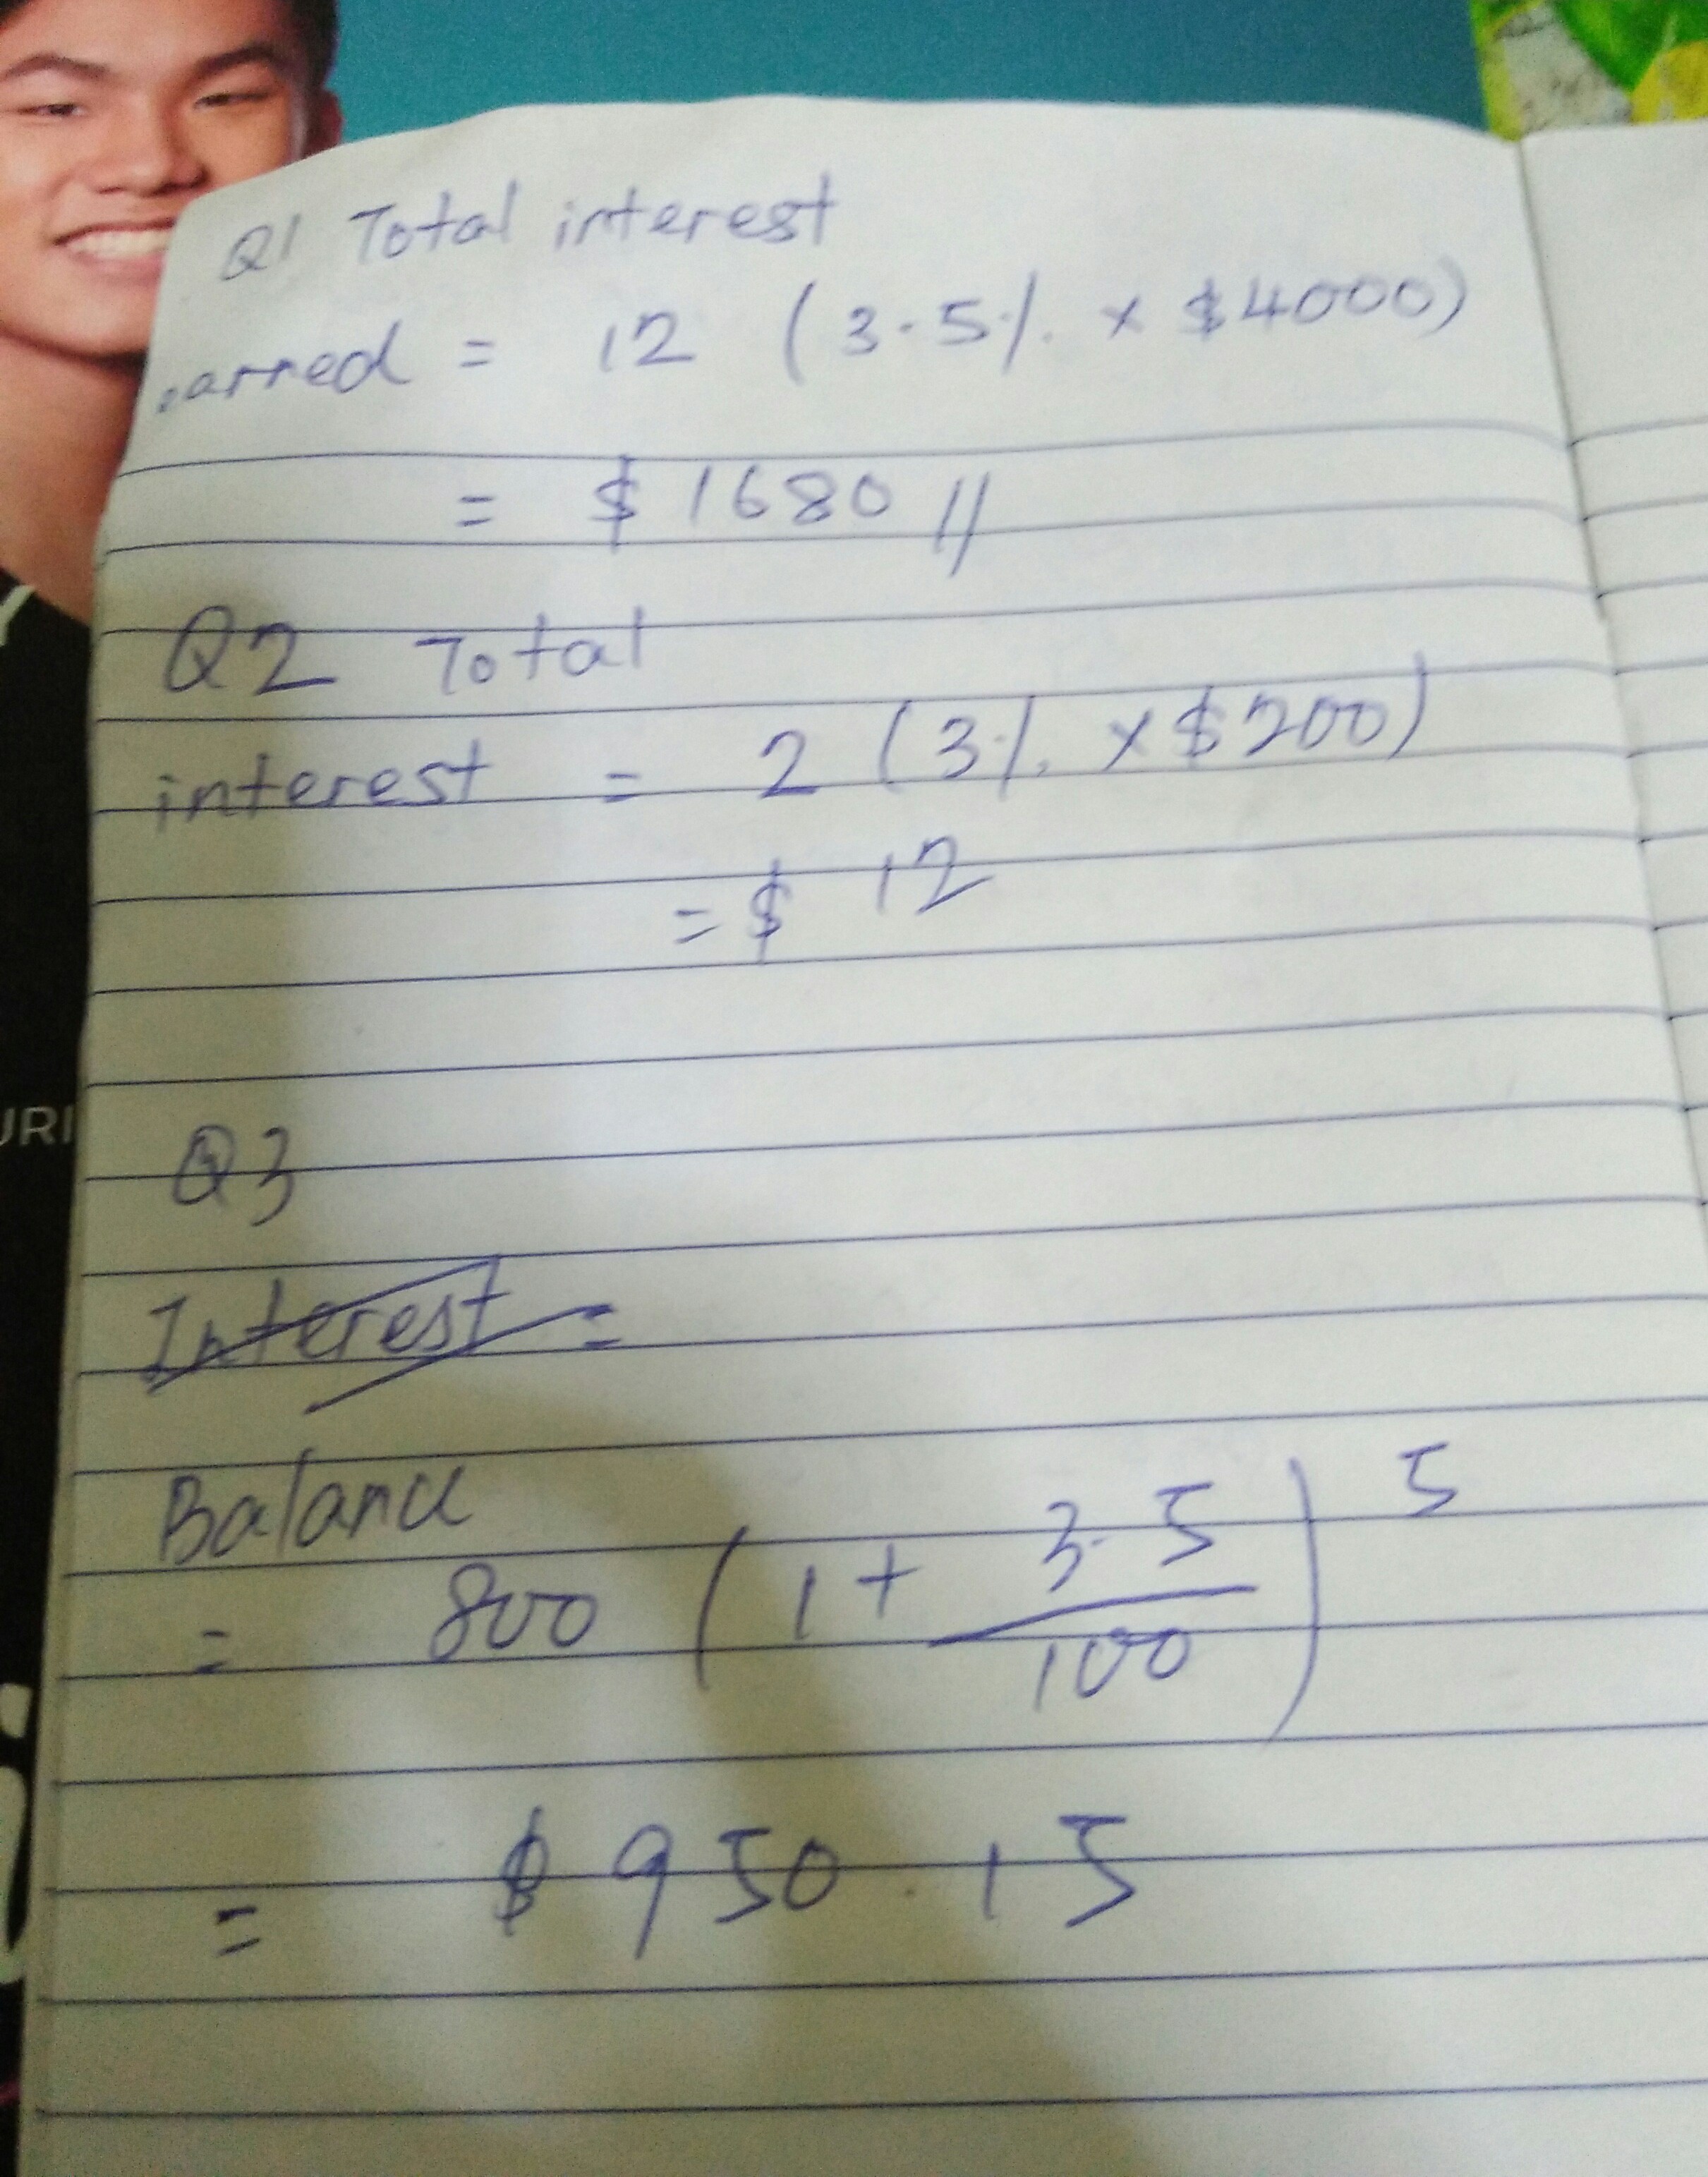 Q1 Total interest
earned = 12 (3.5% × $4000)
= $1680 //
Q2 Total
interest = 2 (3% × $200)
= $ 12
Q3
Interest =
Balance
= 800 (1 + 3.5/100)^5
= $950.15
URI